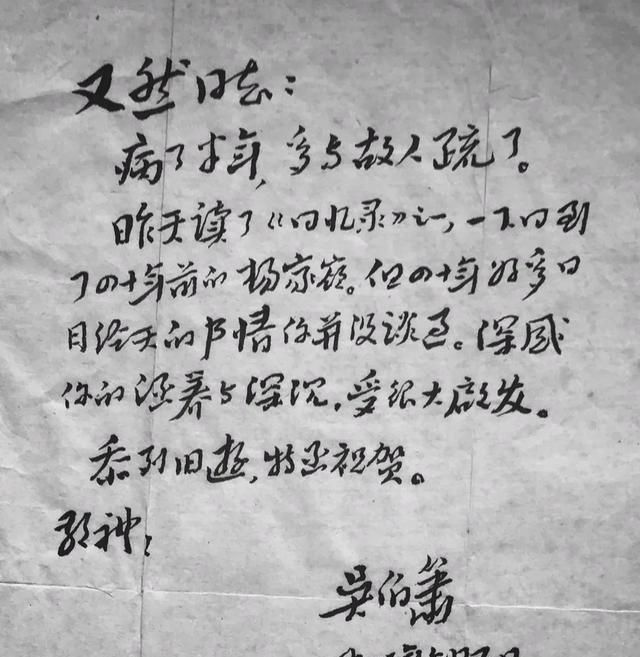 又然同志：
病了半年，多与故人疏了。
昨天读了《回忆录》之一，一下回到
了四十年前的杨家岭。但四十年好多日
月经天的事情你并没谈。深感
你的涵养与深沉，受很大启发。
忝列旧游，特函祝贺。
吴伯箫